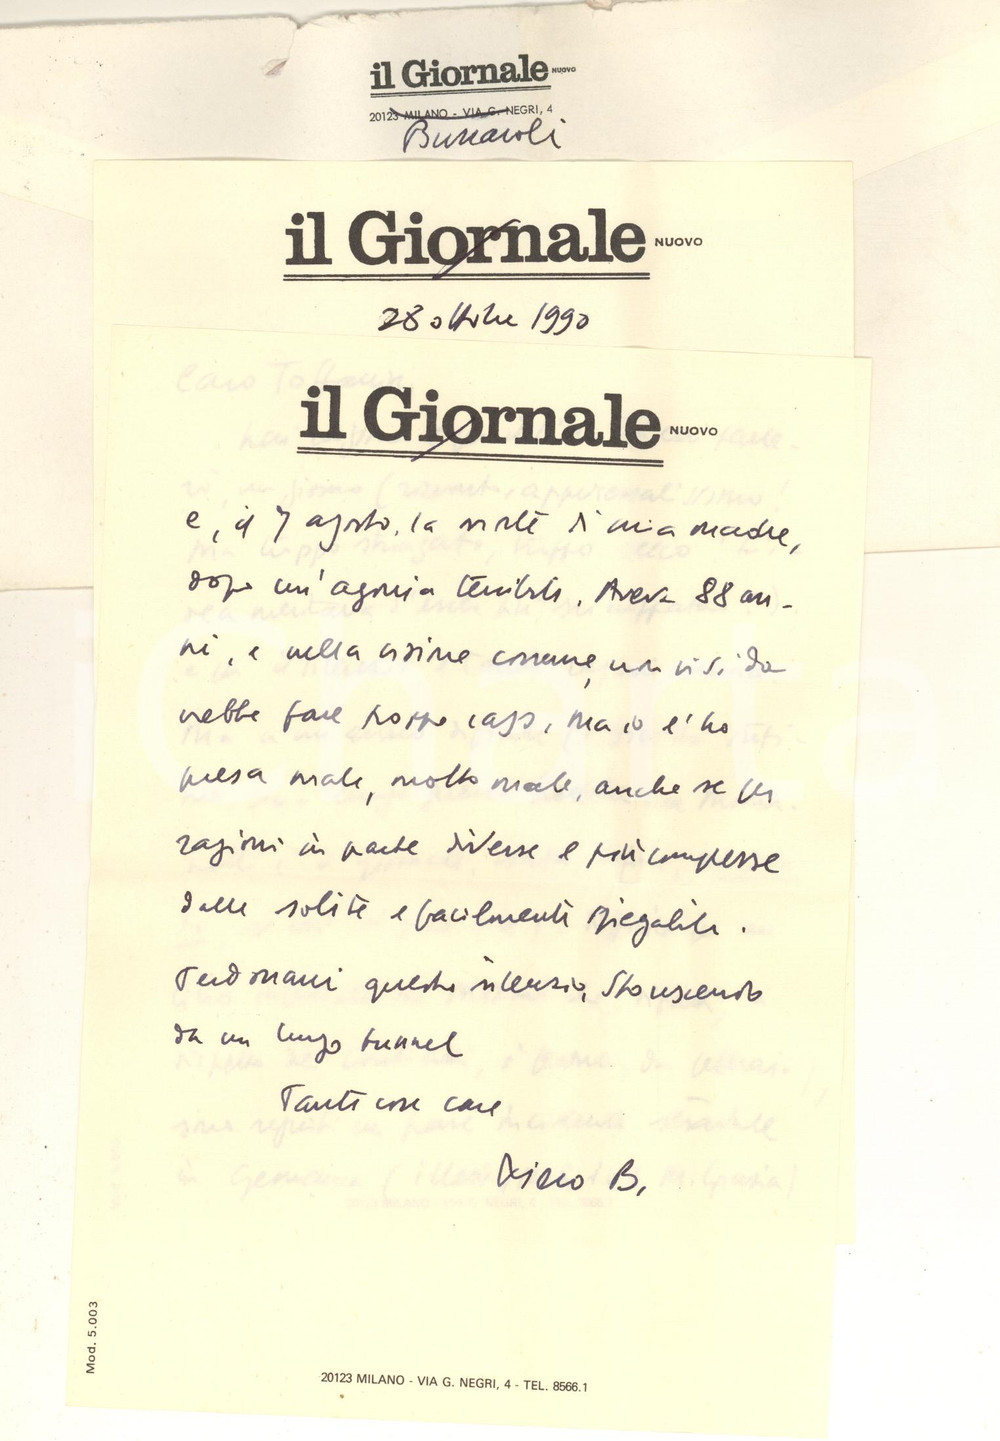 il Giornale NUOVO
20123 MILANO - VIA G. NEGRI, 4
Buzzaroli
il Giornale NUOVO
28 ottobre 1990
il Giornale NUOVO
e, il 7 agosto, la morte di mia madre,
dopo un'agonia terribile. Aveva 88 an-
ni, e nella visione comune, non vi si do
vrebbe fare troppo caso, ma io l'ho
presa male, molto male, anche se per
ragioni in parte diverse e più complesse
dalle solite e facilmente spiegabili.
Perdonami questo silenzio. Sto uscendo
da un lungo tunnel
Tante cose care
B.
Mod. 5.003
20123 MILANO - VIA G. NEGRI, 4 - TEL. 8566.1